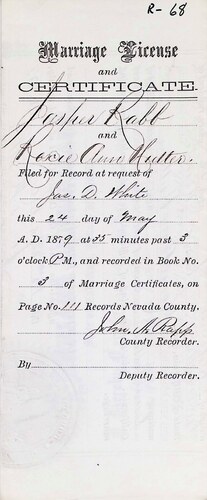 R-68
Marriage License
and
CERTIFICATE.
Jasper Rabb
and
Roxie Ann Nutter.
Filed for Record at request of
Jas. D. White
this 24 day of May
A. D. 1879 at 35 minutes past 3
o'clock P M., and recorded in Book No.
3 of Marriage Certificates, on
Page No. 111 Records Nevada County.
John A. Rapp
County Recorder.
By
Deputy Recorder.